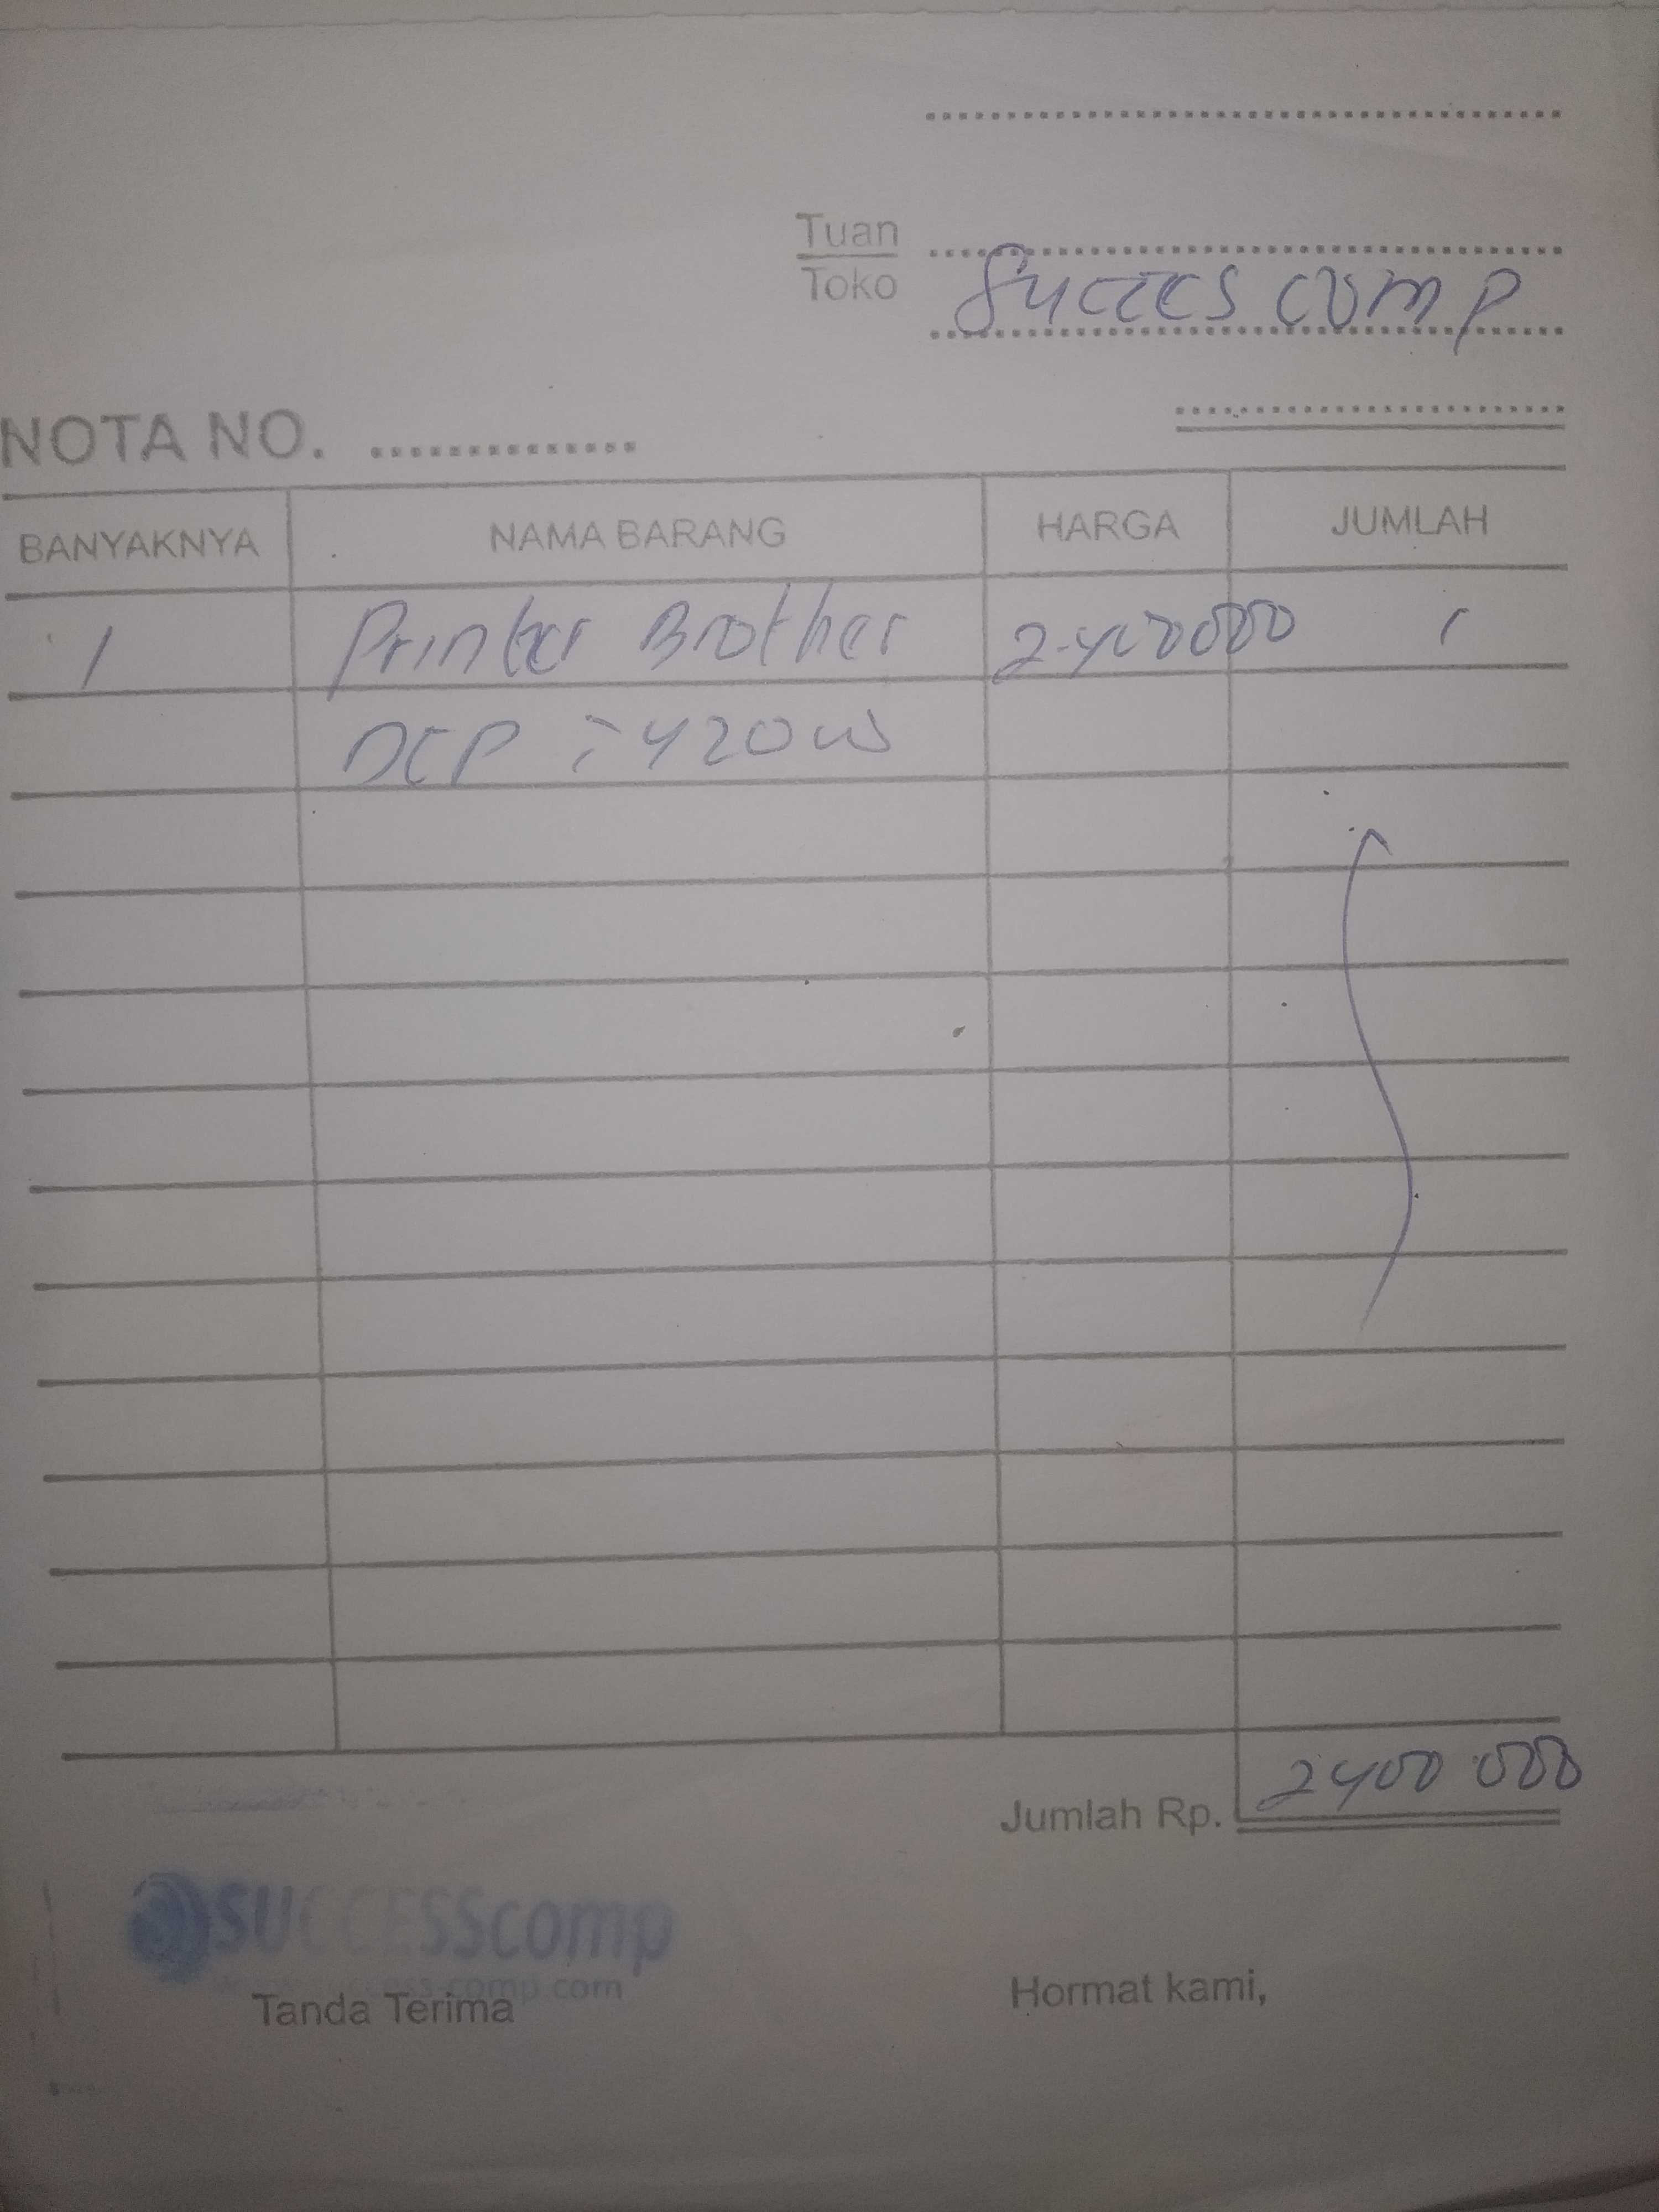 Tuan
Toko
Succes comp
NOTA NO. ..............
BANYAKNYA NAMA BARANG HARGA JUMLAH
1 Printer Brother 2.400000
DCP : 420 W
Jumlah Rp. 2400 000
SUCCESScomp
Tanda Terima
Hormat kami,